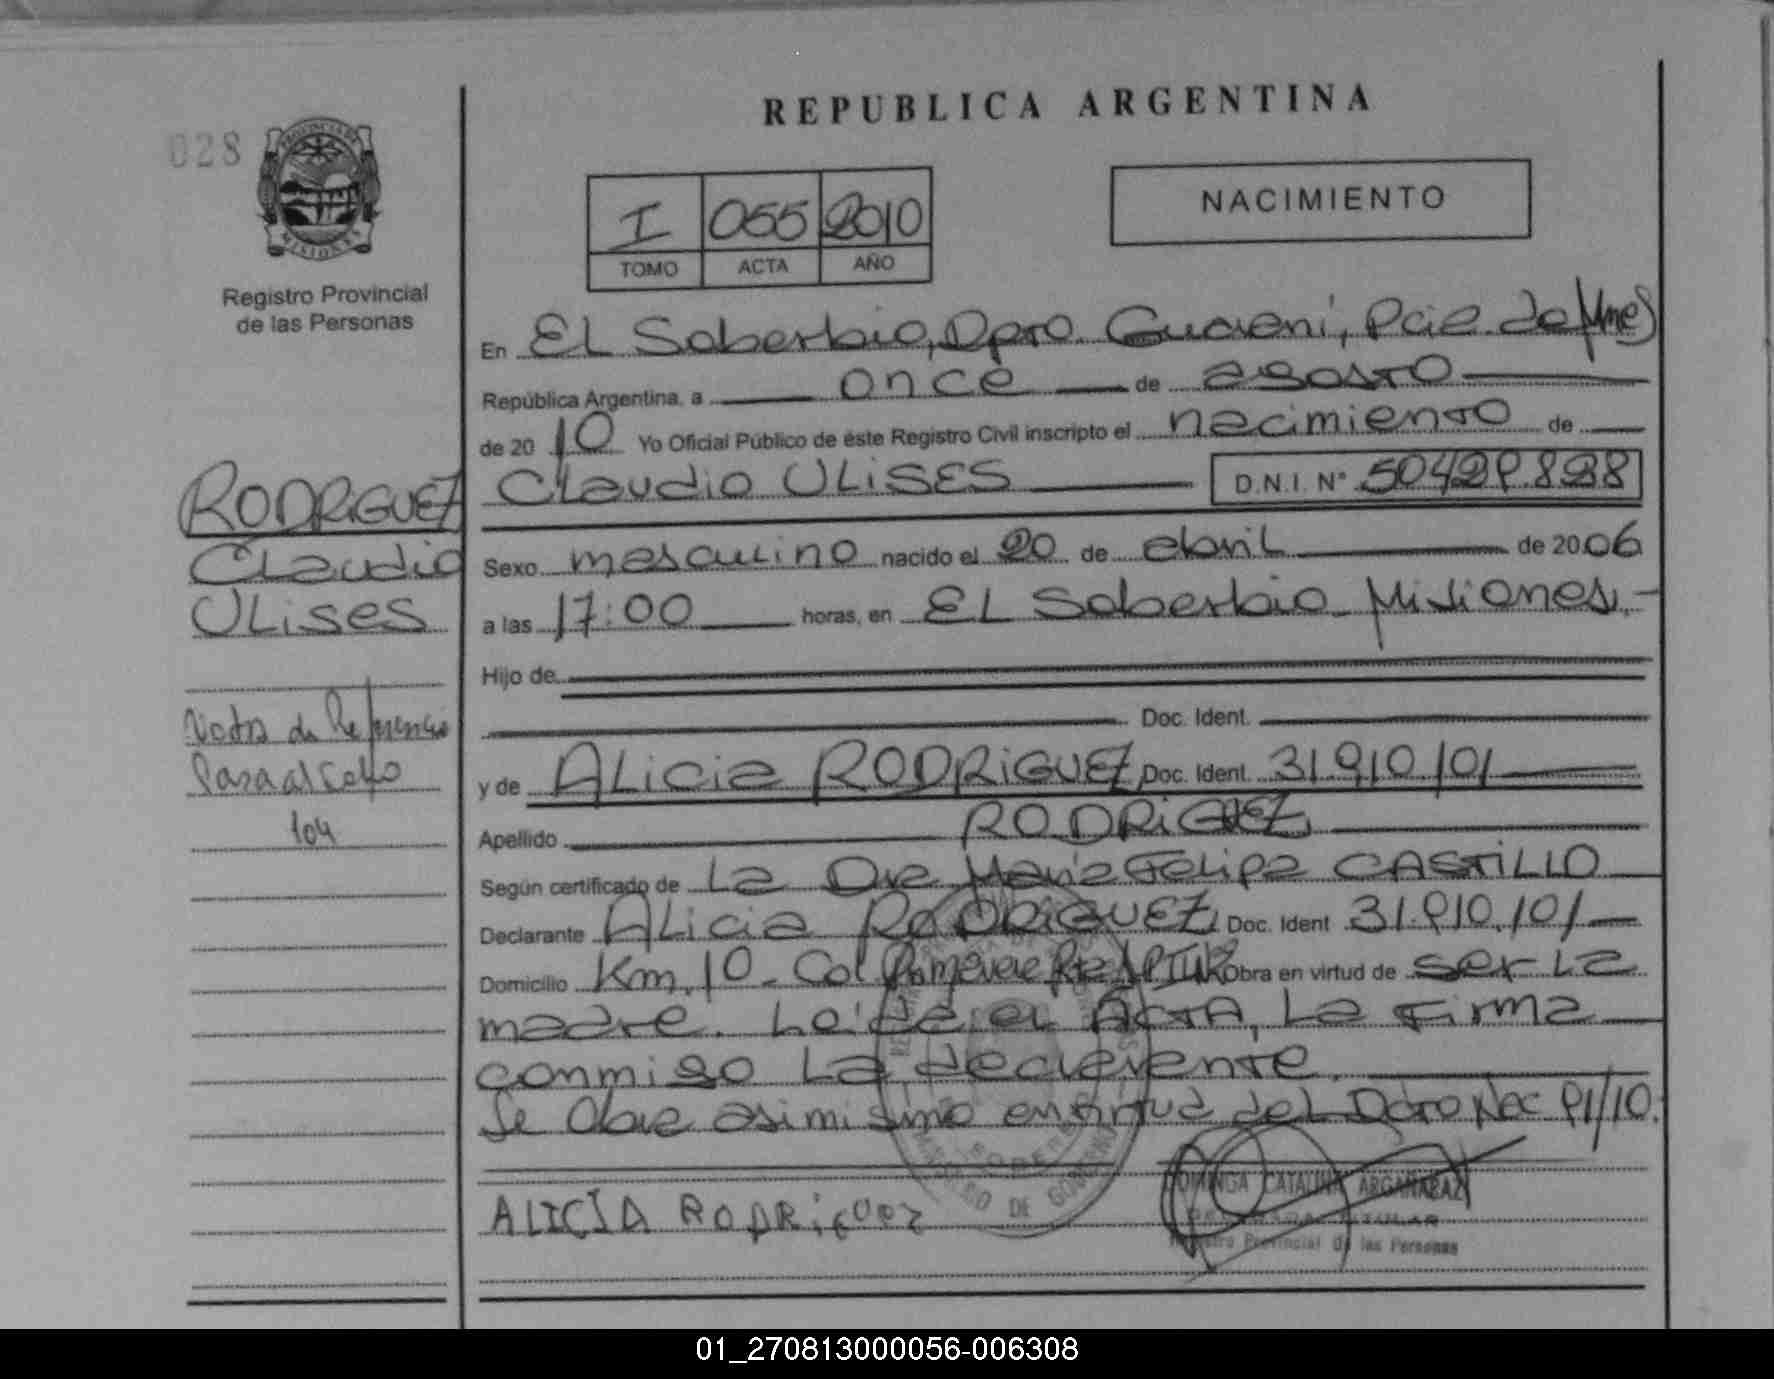 REPUBLICA ARGENTINA
028
PROVINCIA DE
MISIONES
Registro Provincial
de las Personas
I 055 2010
TOMO ACTA AÑO
NACIMIENTO
En EL Soberbio, Dpto. Guarani, Pcia. de Mnes
República Argentina, a once de agosto
de 2010 Yo Oficial Público de éste Registro Civil inscripto el nacimiento de
Claudio ULISES D.N.I. N°
RODRIGUEZ
Claudio
ULises
Sexo masculino nacido el 20 de abril de 2006
a las 17:00 horas, en EL Soberbio Misiones.-
Hijo de
Doc. Ident.
Nota de Referencia
104
y de ALicia RODRIGUEZ Doc. Ident. 31.910.101
Apellido RODRIGUEZ
Según certificado de La Dra Maria Felipa CASTILLO
Declarante ALicia RODRIGUEZ, Doc. Ident 31.910.101
Domicilio Km. 10 - Col Obra en virtud de ser La
madre. Leída el ACTA, La Firma
conmigo La declarante.
Se Obra asimismo en virtud del Dcto Nac 91/10.
MINISTERIO DE GOBIERNO
ALICIA RODRiGUEZ
DOMINGA CATALINA ARGAÑARAZ
Registro Provincial de las Personas
01_270813000056-006308